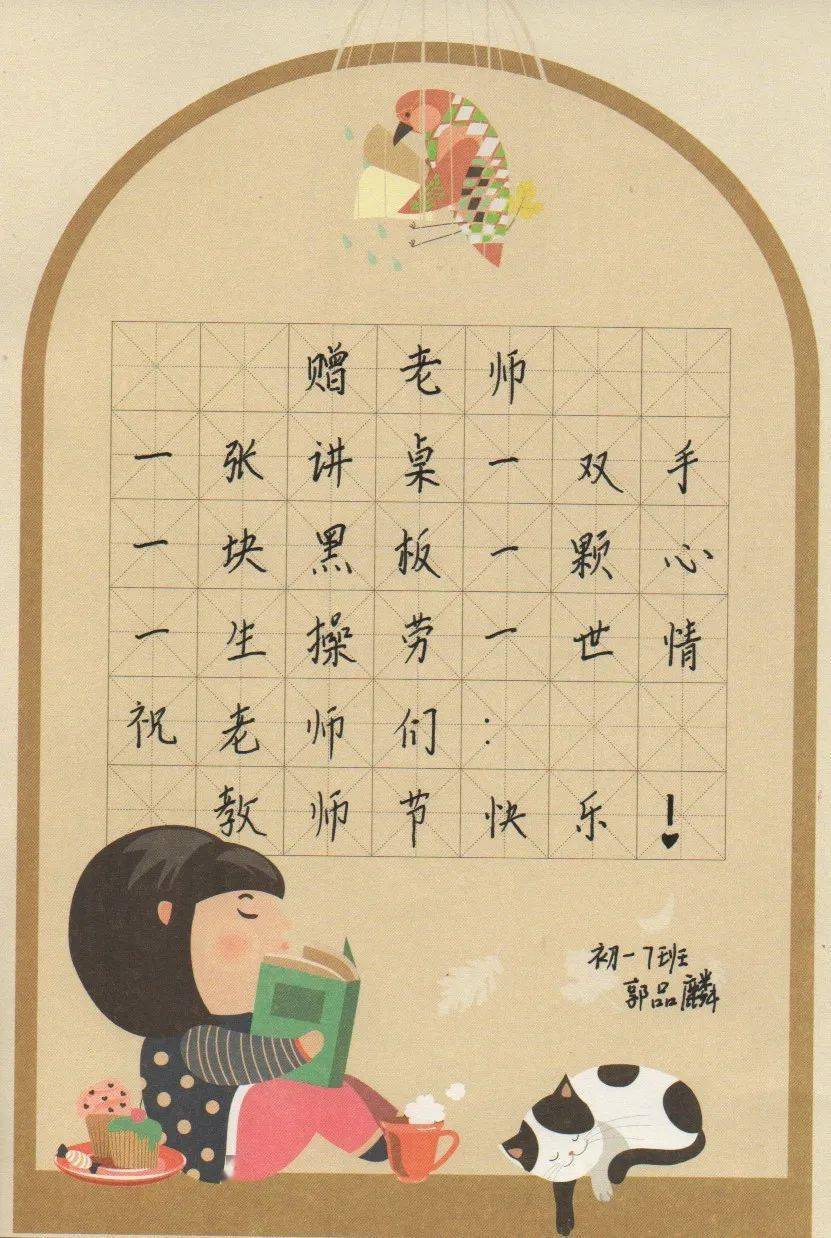 赠老师
一张讲桌一双手
一块黑板一颗心
一生操劳一世情
祝老师们:
教师节快乐!
初一7班
郭品麟